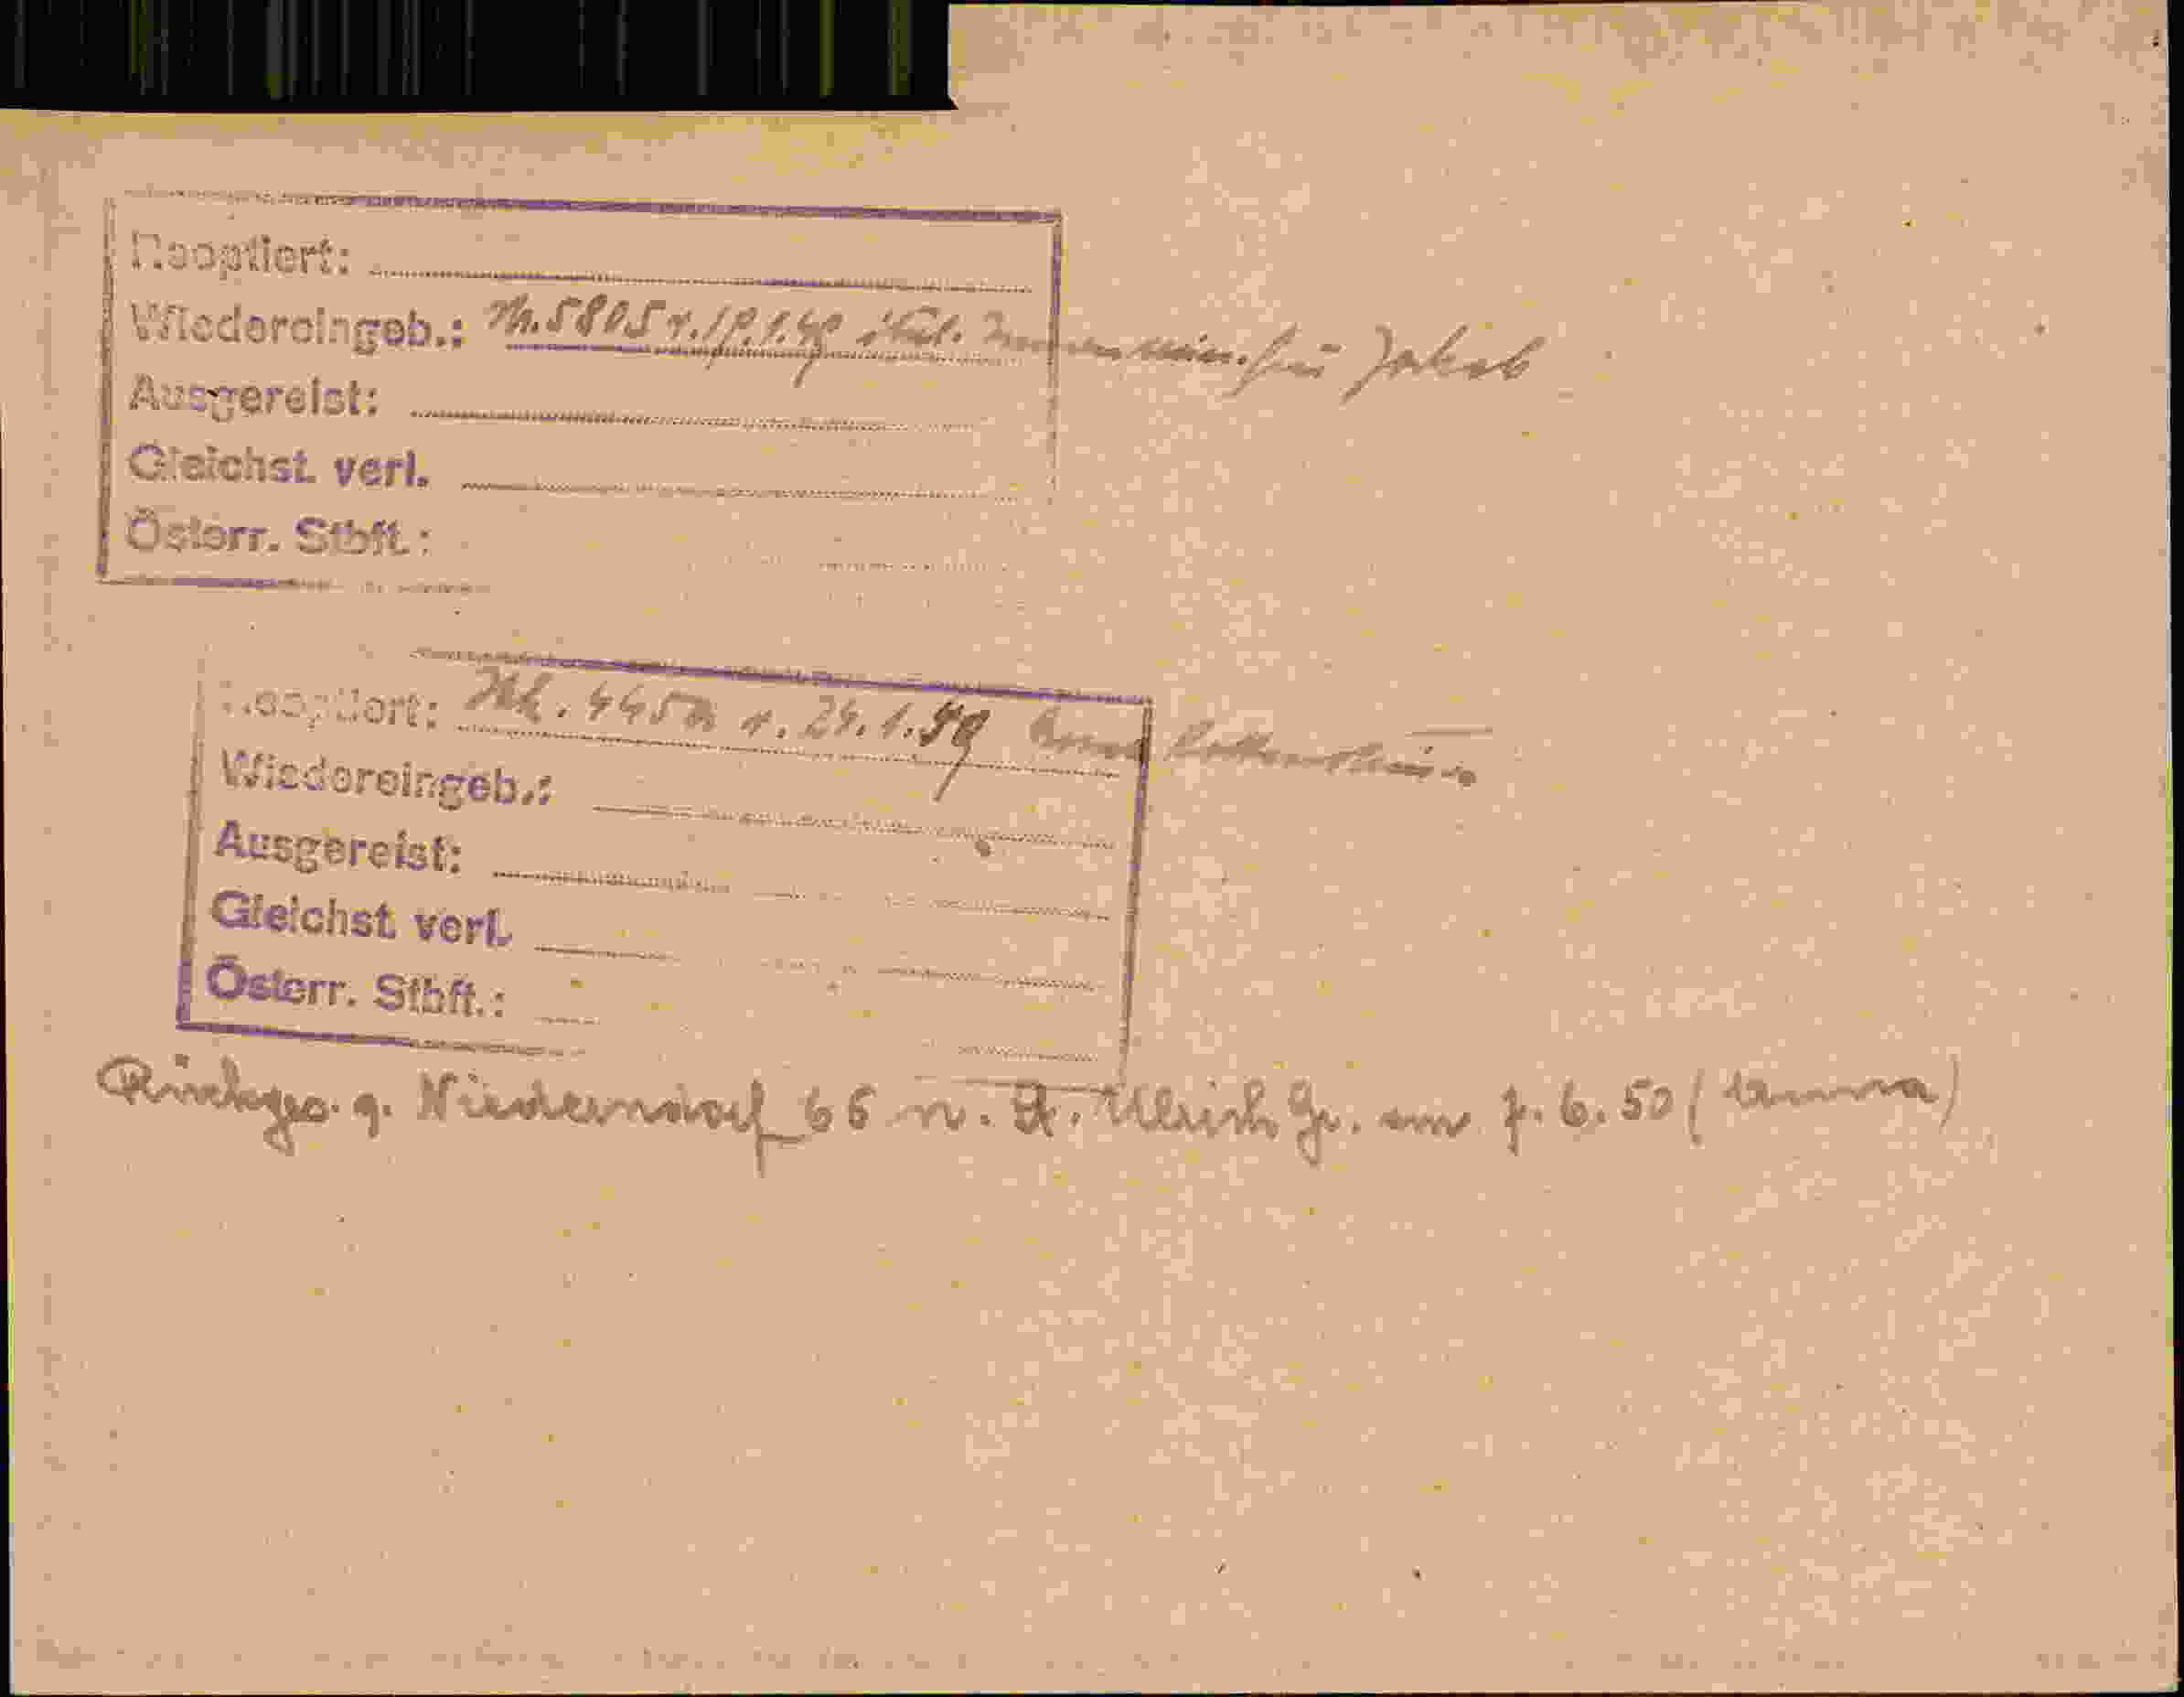 Reoptiert:
Wiedereingeb.: 5805 v. 19.1.49 ital. für Jakob
Ausgereist:
Gleichst. verl.
Österr. Stbft.:
Reoptiert: v. 24.1.49 Anna
Wiedereingeb.:
Ausgereist:
Gleichst. verl.
Österr. Stbft.:
Rückges. g. Niederndorf 66 n. St. Ulrich Gr. am 7.6.50 (Anna)